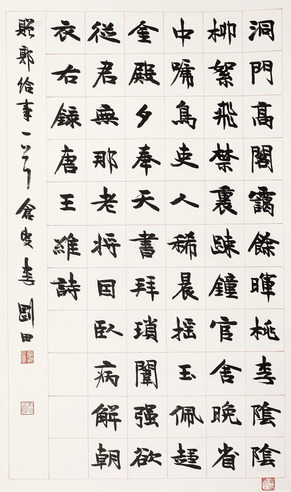 洞門髙閣靄餘暉桃李隂隂
柳絮飛禁裏踈鐘官舍晚省
中嗁鳥吏人稀晨摇玉佩趨
金殿夕奉天書拜瑣闈强欲
從君無那老將因臥病解朝
衣右録唐王維詩
酬郭給事一首 劉田